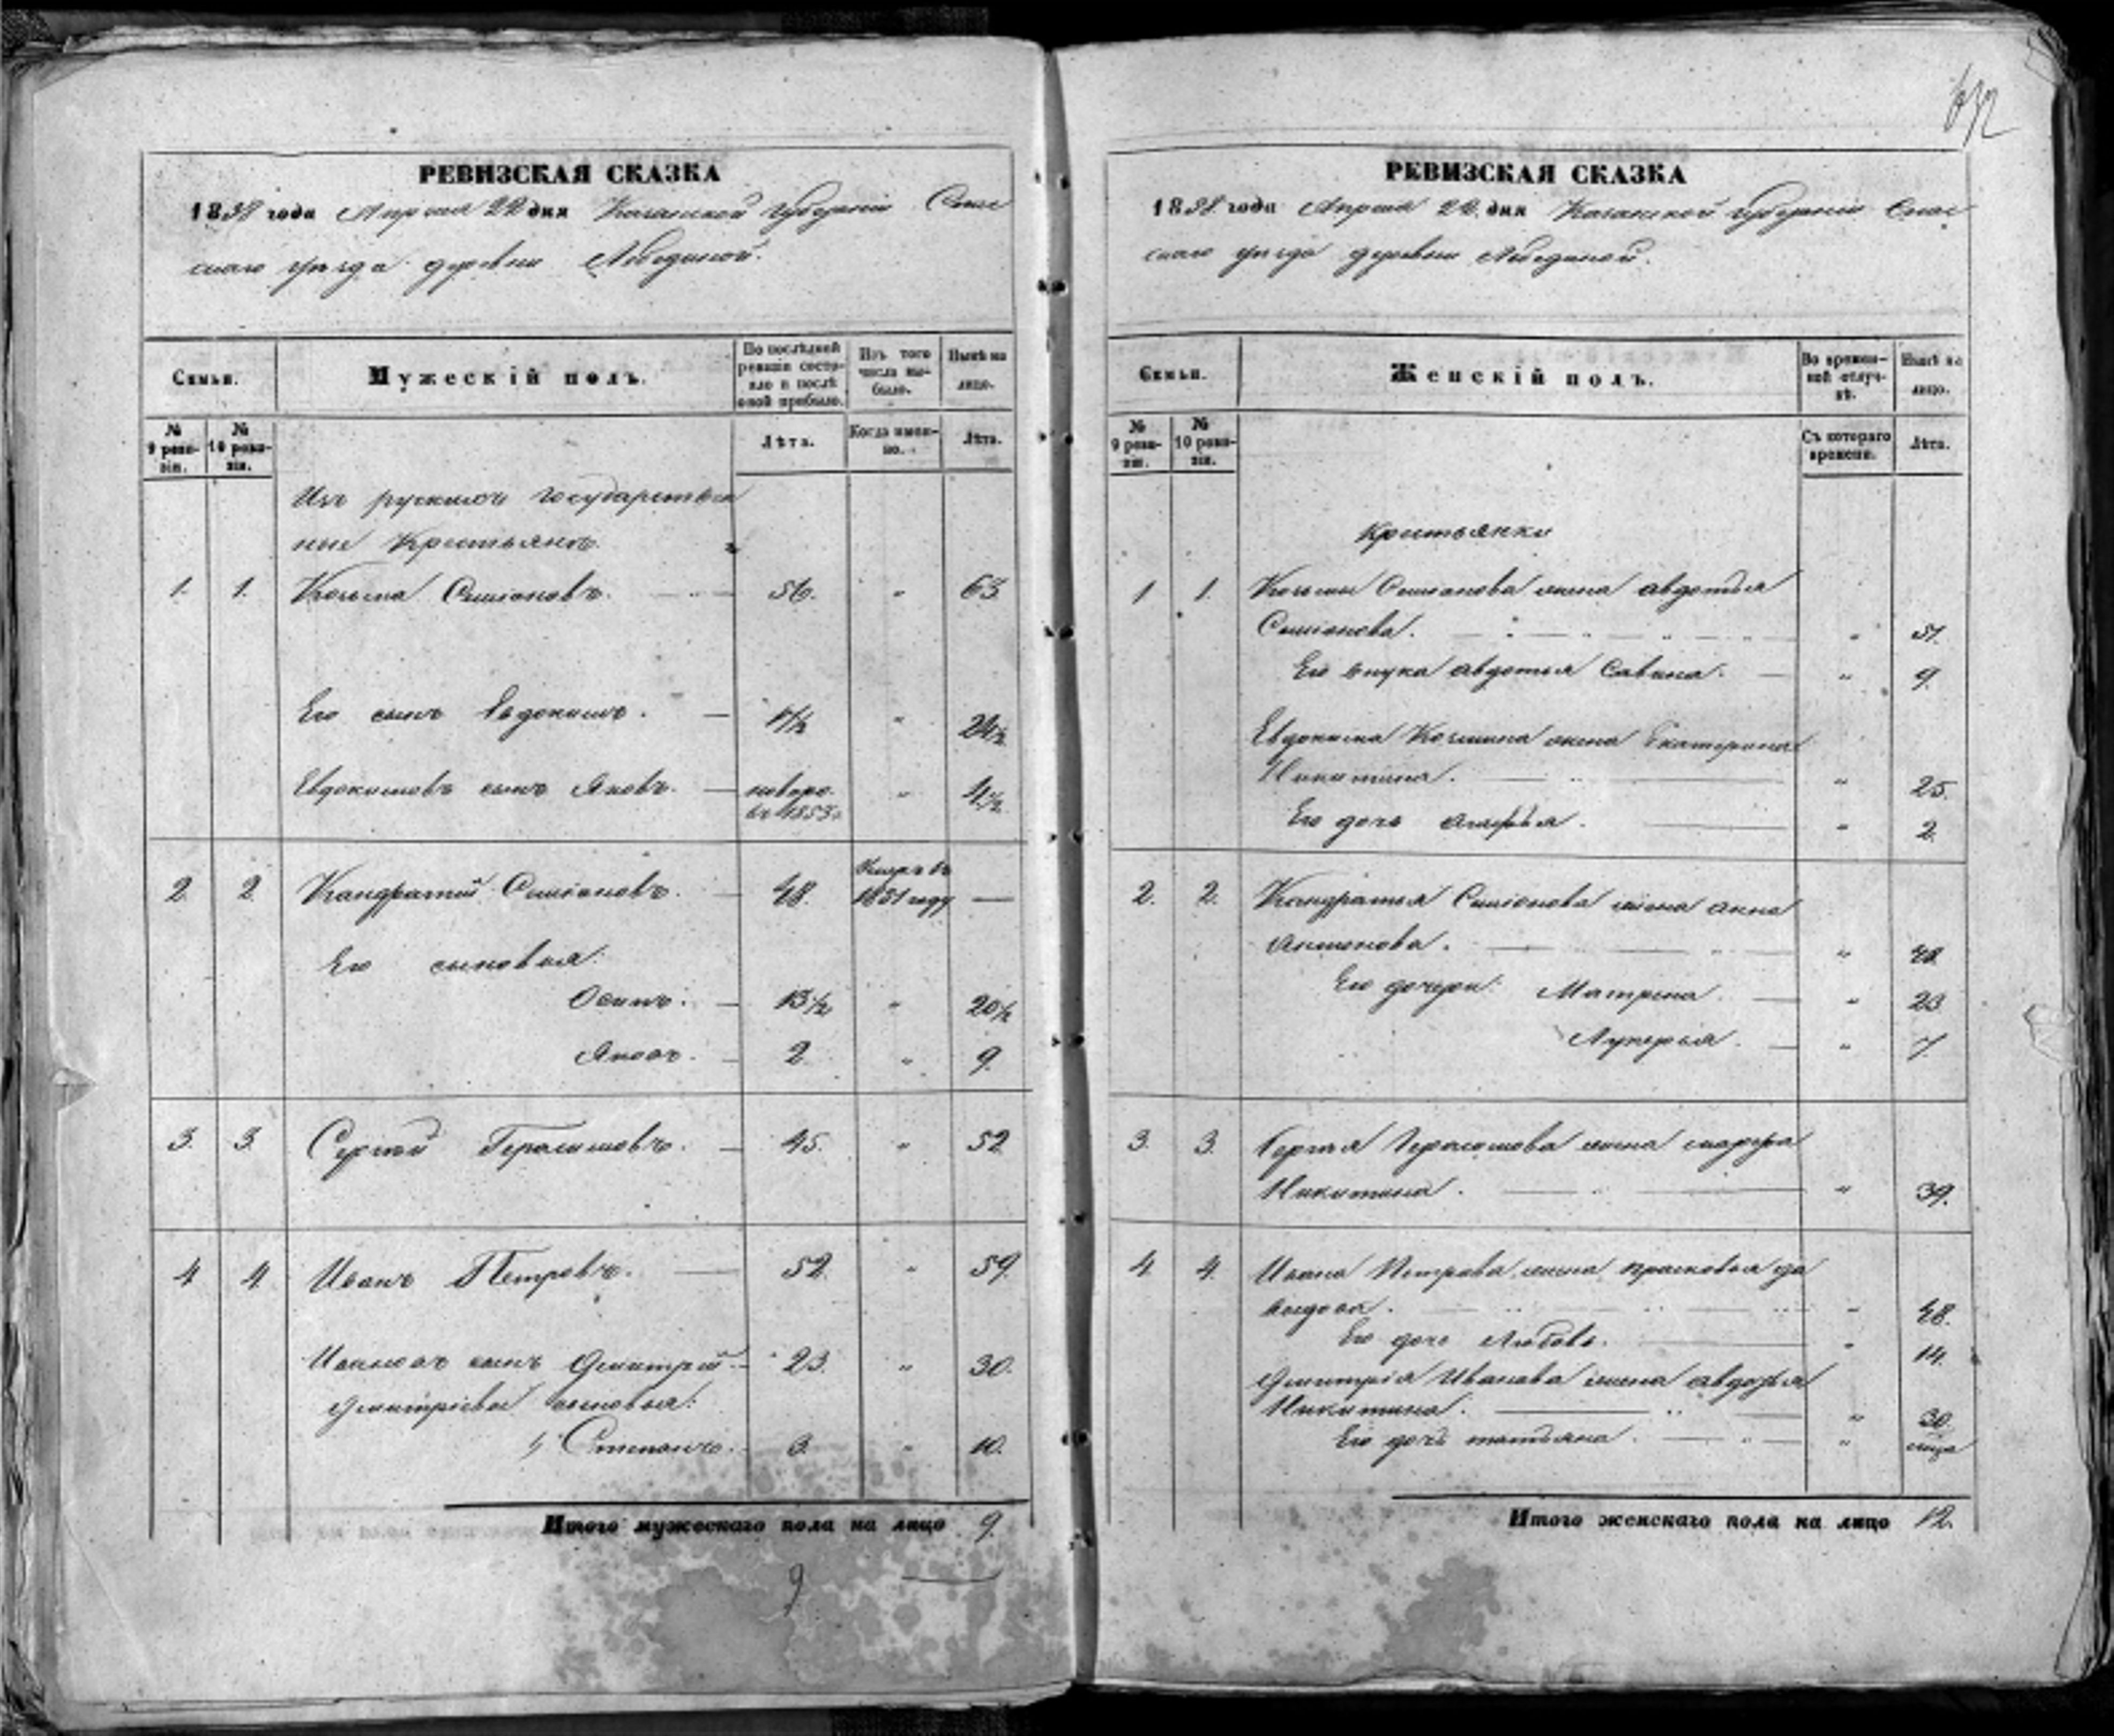 632
РЕВИЗСКАЯ СКАЗКА
1858 года Апреля 22 дня Казанской губернiи Спас
скаго уѣзда деревни Лебединой.
Семьи.
Мужескiй полъ.
По послѣдней ревизiи состояло и послѣ оной прибыло.
Изъ того числа выбыло.
Нынѣ на лицо.
№ 9 ревизiи.
№ 10 ревизiи.
Лѣта.
Когда именно.
Лѣта.
Изъ руских государствен
ные Крестьянъ.
1. 1. Козьма Симiоновъ. 56. " 63
Его сынъ Евдокимъ. " 24½
Евдокимовъ сынъ Яковъ. новоро. " 4½
въ 1853г
2. 2. Кандратiй Симiоновъ. 48. Умеръ въ 1851 году —
Его сыновья:
Осипъ. 13½ " 20½
Яковъ. 2. " 9.
3. 3. Сергѣй Герасимовъ. 45. " 52
4 4. Иванъ Петровъ. 52. " 59.
Ивановъ сынъ Дмитрiй 23. " 30.
Дмитрiевы сыновья:
1, Степанъ. 3. " 10.
Итого мужескаго пола на лицо 9.
9
РЕВИЗСКАЯ СКАЗКА
1858 года Апреля 22. дня Казанской губернiи Спас
скаго уѣзда деревни Лебединой.
Семьи.
Женскiй полъ.
Во временной отлучкѣ.
Нынѣ на лицо.
№ 9 ревизiи.
№ 10 ревизiи.
Съ котораго времени.
Лѣта.
Крестьянки
1 1. Козьмы Симiонова жена авдотья
Симiонова. " 51.
Его внука авдотья Савина. " 9.
Евдокима Козмина жена Екатерина
Никитина. " 25.
Его дочь агафья. " 2.
2. 2. Кондратья Симiонова жена анна
Антонова. " 48
Его дочери: Матрена. " 23
Лукерья. " 7
3. 3. Сергѣя Герасимова жена марфа
Никитина. " 39.
4. 4. Ивана Петрова жена прасковья да
выдова. " 48.
Его доче Любовь. " 14.
Дмитрiя Иванова жена авдотья
Никитина. " 30.
Его дочь татьяна. "
Итого женскаго пола на лицо 12.